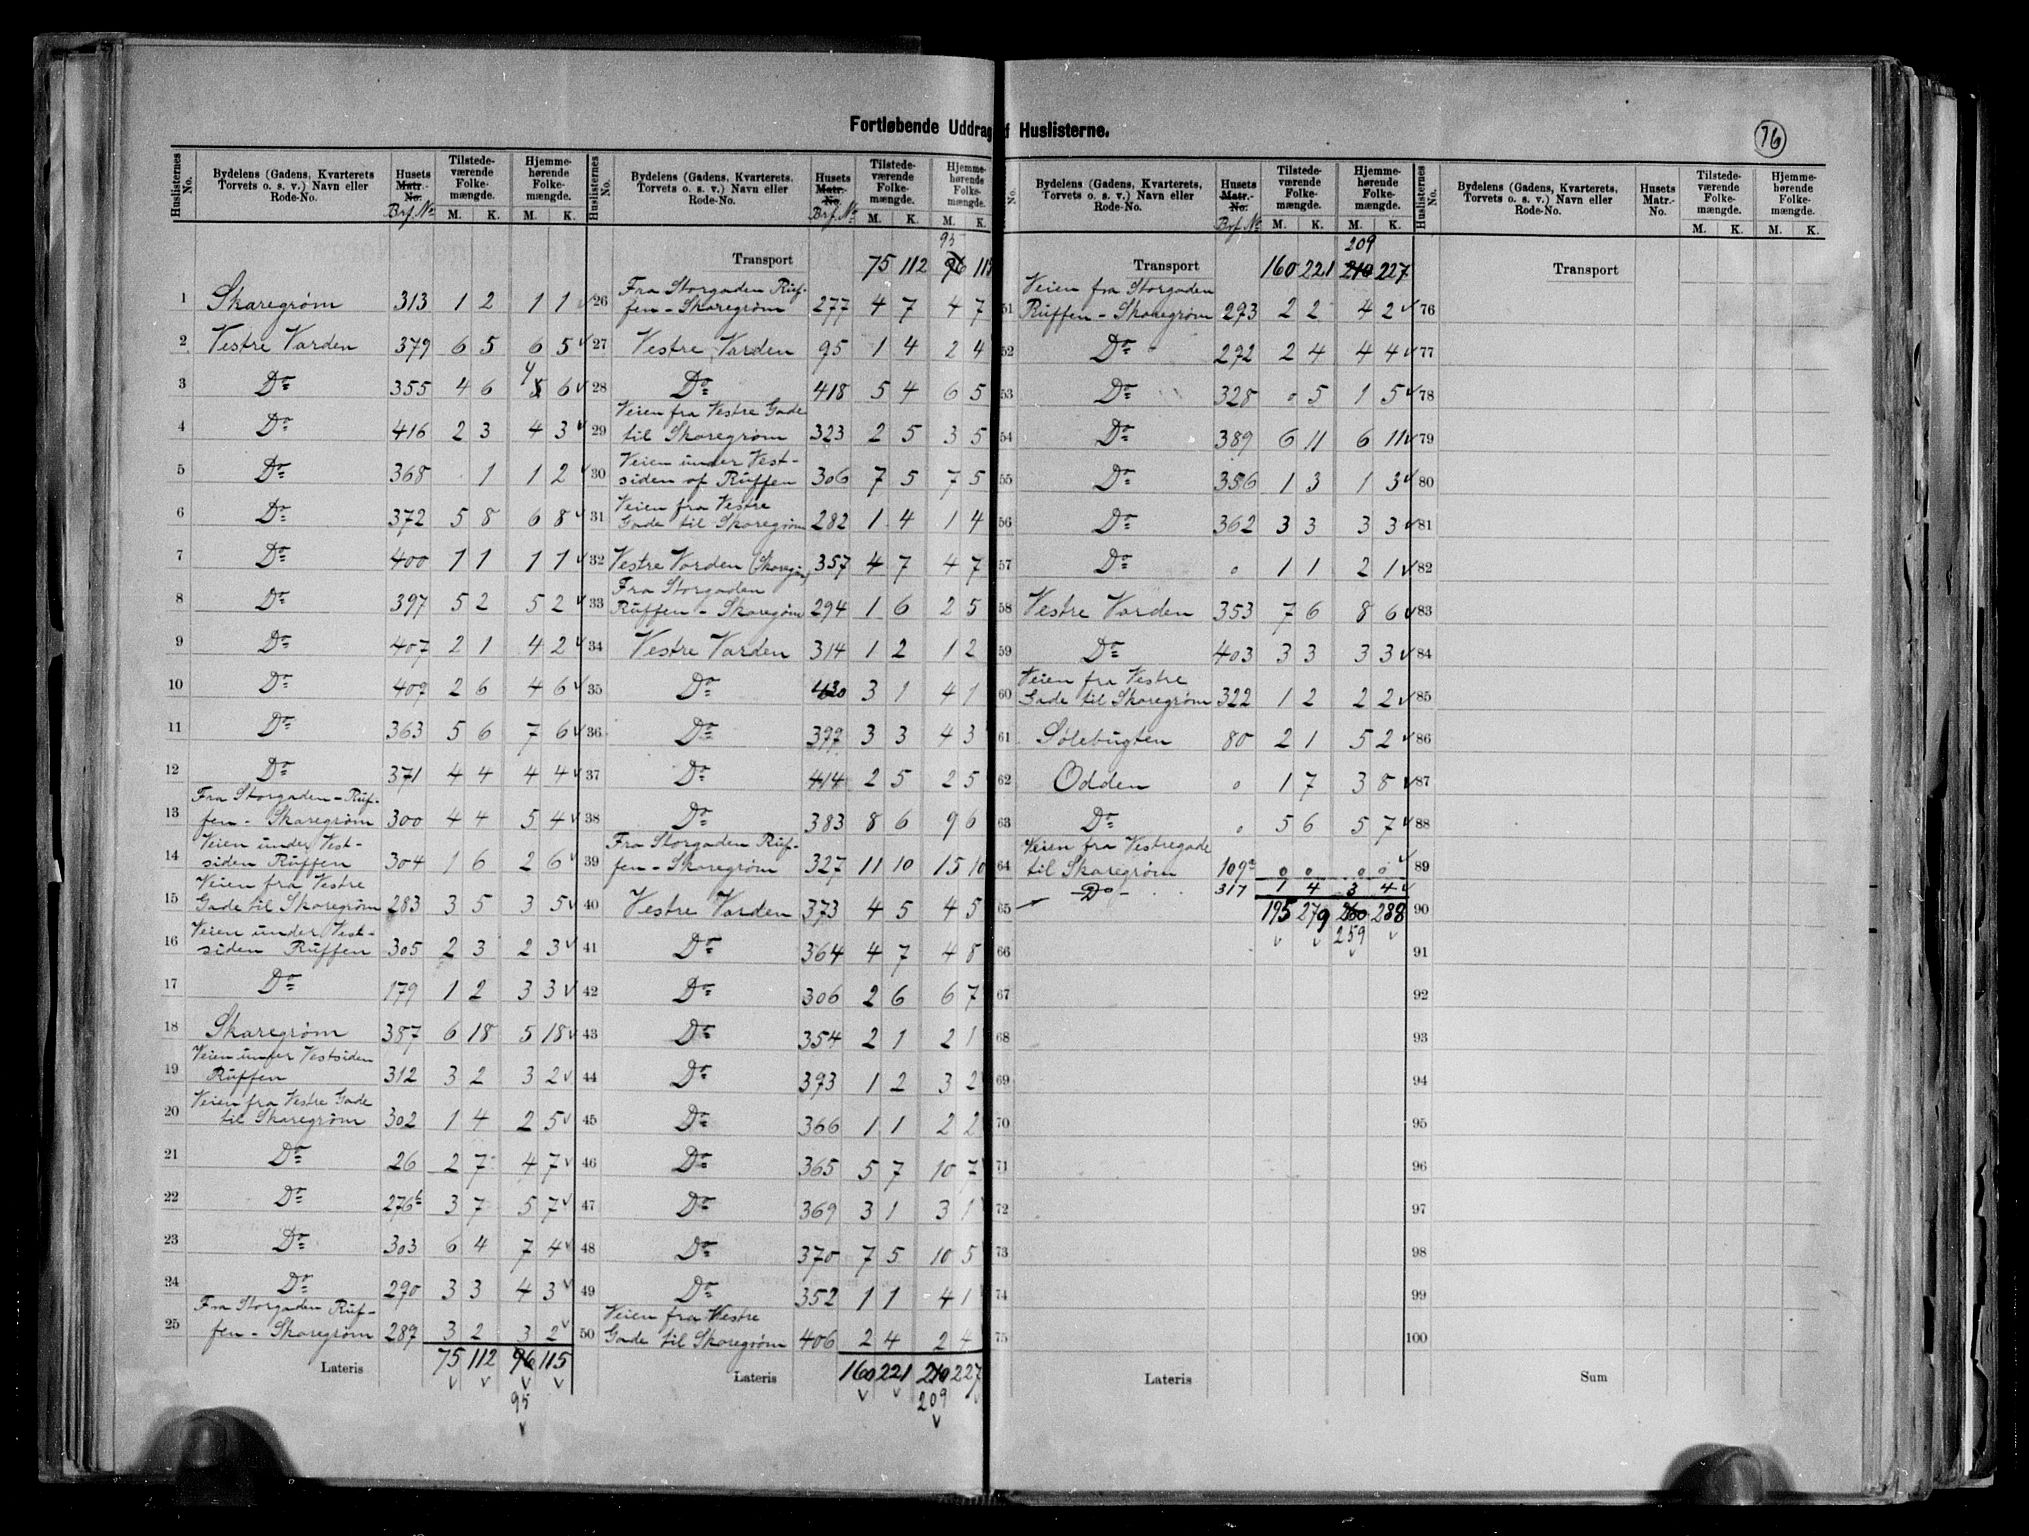 Fortløbende Uddrag af Huslisterne.
76
Huslisternes No. | Bydelens (Gadens, Kvarterets Torvets o. s. v.) Navn eller Rode-No. | Husets Matr.-No. Brf. No | Tilstedeværende Folkemængde. M. K. | Hjemmehørende Folkemængde. M. K.
1 Skaregrøm 313 1 2 1 1
2 Vestre Varden 379 6 5 6 5
3 Do 355 4 6 4 6
4 Do 416 2 3 4 3
5 Do 368 1 1 2
6 Do 372 5 8 6 8
7 Do 400 1 1 1 1
8 Do 397 5 2 5 2
9 Do 407 2 1 4 2
10 Do 409 2 6 4 6
11 Do 363 5 6 7 6
12 Do 371 4 4 4 4
13 Fra Storgaden - Ruf-
fen - Skaregrøm 300 4 4 5 4
14 Veien under Vest-
siden Ruffen 304 1 6 2 6
15 Veien fra Vestre
Gade til Skaregrøm 283 3 5 3 5
16 Veien under Vest-
siden Ruffen 305 2 3 2 3
17 Do 179 1 2 3 3
18 Skaregrøm 387 6 18 5 18
19 Veien under Vestsiden
Ruffen 312 3 2 3 2
20 Veien fra Vestre Gade
til Skaregrøm 302 1 4 2 5
21 Do 26 2 7 4 7
22 Do 276b 3 7 5 7
23 Do 303 6 4 7 4
24 Do 290 3 3 4 3
25 Fra Storgaden Ruf-
fen - Skaregrøm 289 3 2 3 2
Lateris 75 112 96 115
95
Huslisternes No. | Bydelens (Gadens, Kvarterets, Torvets o. s. v.) Navn eller Rode-No. | Husets Matr.-No. Brf. No | Tilstedeværende Folkemængde. M. K. | Hjemmehørende Folkemængde. M. K.
95
Transport 75 112 96
26 Fra Storgaden Ruf-
fen - Skaregrøm 277 4 7 4 7
27 Vestre Varden 95 1 4 2 4
28 Do 418 5 4 6 5
29 Veien fra Vestre Gade
til Skaregrøm 323 2 5 3 5
30 Veien under Vest-
siden af Ruffen 306 7 5 7 5
31 Veien fra Vestre
Gade til Skaregrøm 282 1 4 1 4
32 Vestre Varden (Skaregrøm) 357 4 7 4 7
33 Fra Storgaden
Ruffen - Skaregrøm 294 1 6 2 5
34 Vestre Varden 314 1 2 1 2
35 Do 3 1 4 1
36 Do 399 3 3 4 3
37 Do 414 2 5 2 5
38 Do 383 8 6 9 6
39 Fra Storgaden Ruf-
fen - Skaregrøm 327 11 10 15 10
40 Vestre Varden 373 4 5 4 5
41 Do 364 4 7 4 8
42 Do 306 2 6 6 7
43 Do 354 2 1 2 1
44 Do 393 1 2 3 2
45 Do 366 1 1 2 2
46 Do 365 5 7 10 7
47 Do 369 3 1 3 1
48 Do 370 7 5 10 5
49 Do 352 1 1 4 1
50 Veien fra Vestre
Gade til Skaregrøm 406 2 4 2 4
Lateris 160 221 210 227
209
No. | Bydelens (Gadens, Kvarterets, Torvets o. s. v.) Navn eller Rode-No. | Husets Matr.-No. Brf No | Tilstedeværende Folkemængde. M. K. | Hjemmehørende Folkemængde. M. K.
209
Transport 160 221 210 227
51 Veien fra Storgaden
Ruffen - Skaregrøm 293 2 2 4 2
52 Do 292 2 4 4 4
53 Do 328 0 5 1 5
54 Do 389 6 11 6 11
55 Do 356 1 3 1 3
56 Do 362 3 3 3 3
57 Do 0 1 1 2 1
58 Vestre Varden 353 7 6 8 6
59 Do 403 3 3 3 3
60 Veien fra Vestre
Gade til Skaregrøm 322 1 2 2 2
61 Sølebugten 80 2 1 5 2
62 Odden 0 1 7 3 8
63 Do 0 5 6 5 7
64 Veien fra Vestregade
til Skaregrøm 109a 0 0 0 0
65 Do 317 1 4 3 4
195 279 260 288
259
66
67
68
69
70
71
72
73
74
75
Lateris
Huslisternes No. | Bydelens (Gadens, Kvarterets, Torvets o. s. v.) Navn eller Rode-No. | Husets Matr.-No. | Tilstedeværende Folkemængde. M. K. | Hjemmehørende Folkemængde. M. K.
Transport
76
77
78
79
80
81
82
83
84
85
86
87
88
89
90
91
92
93
94
95
96
97
98
99
100
Sum